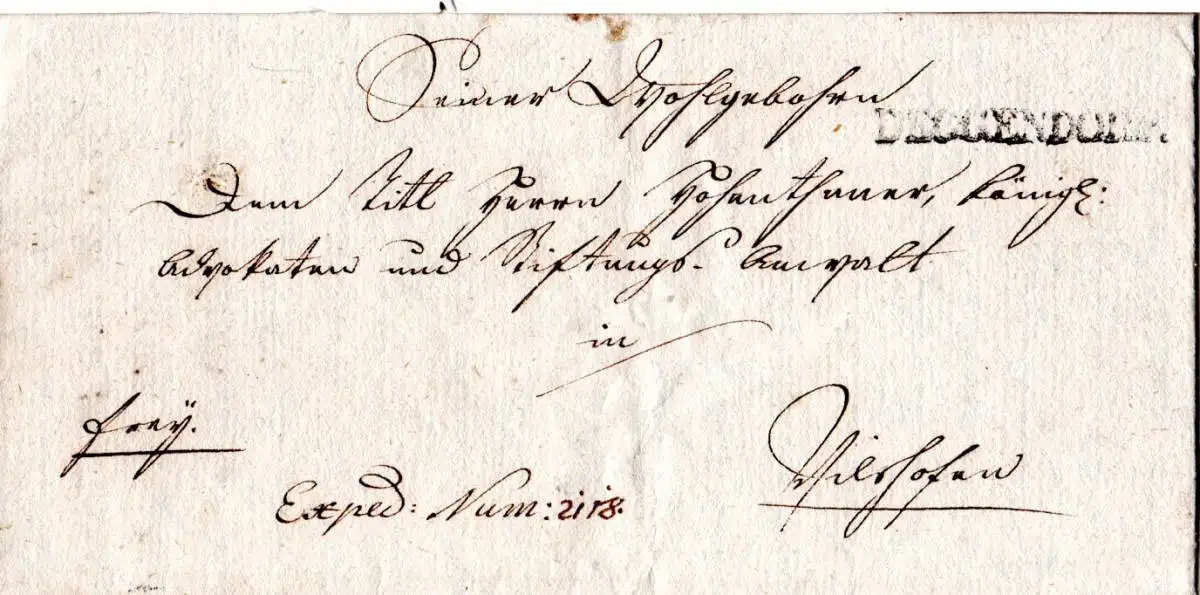 Seiner Wohlgebohrn
DEGGENDORF.
Dem Titl Herrn Hohenthaner, königl:
Advokaten und Stiftungs- Anwalt
in
frey.
Vilshofen
Exped: Num: 2118.